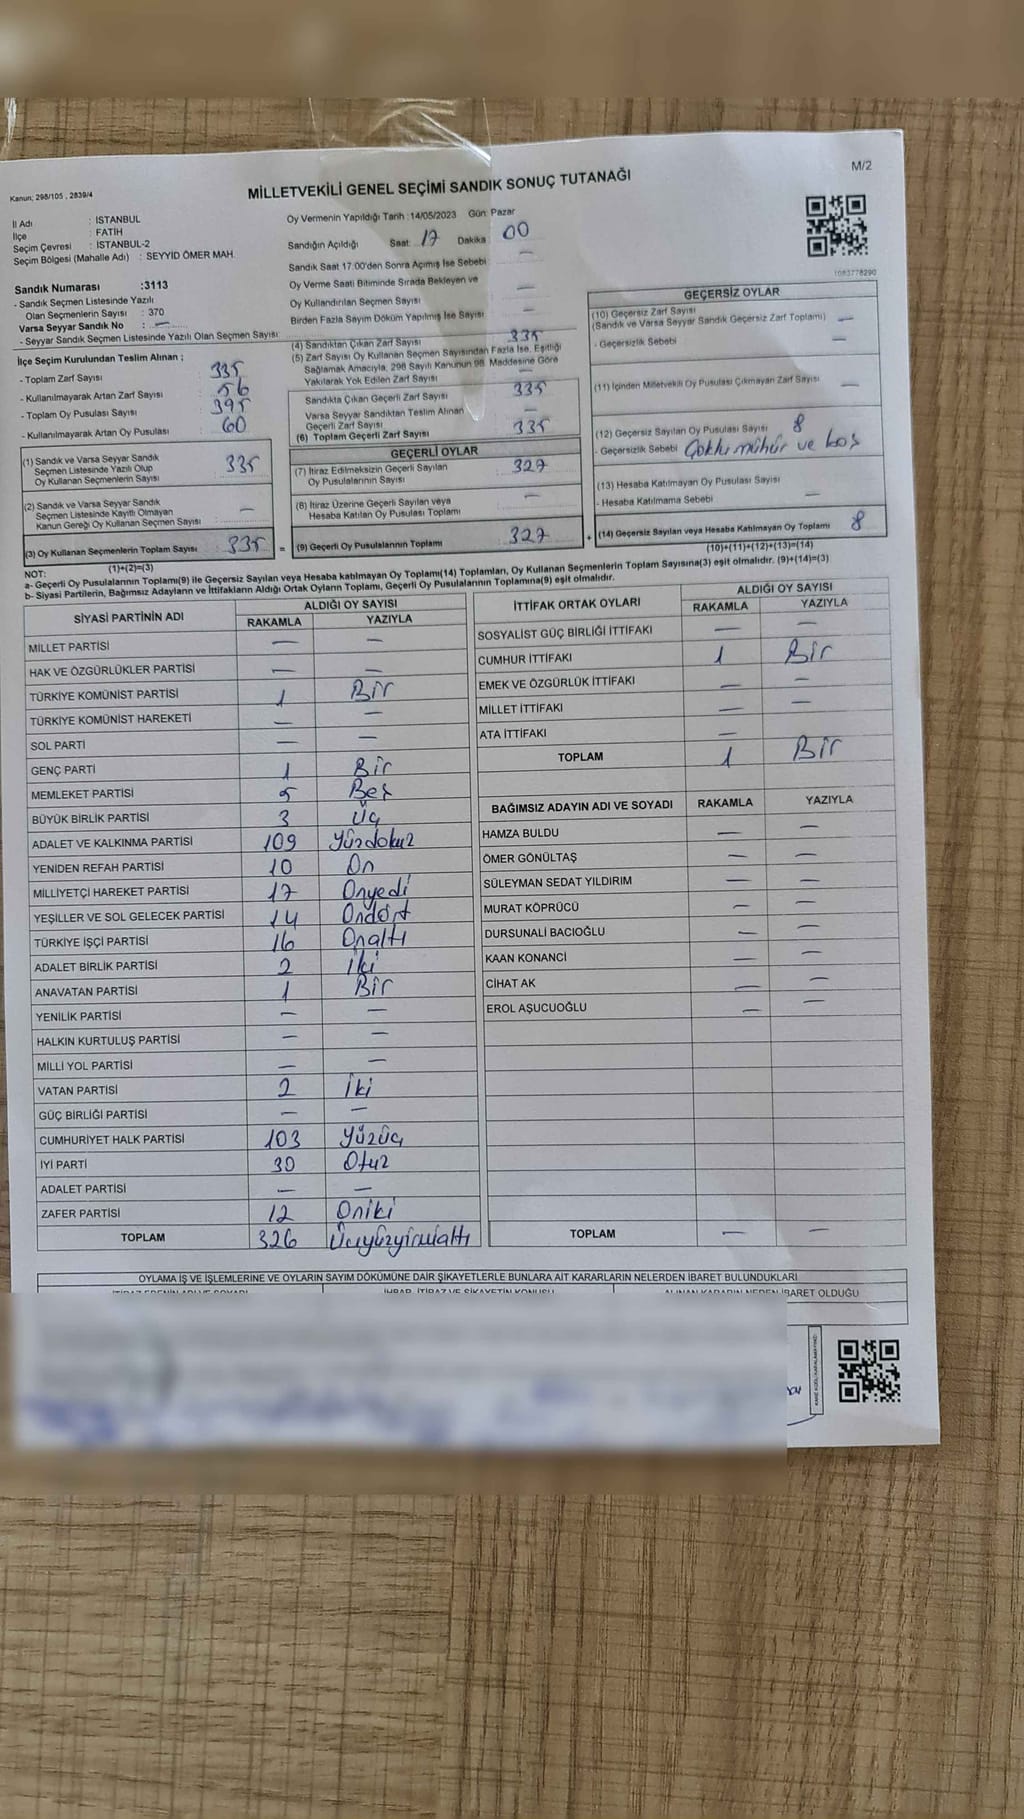 M/2
Kanun; 298/105 , 2839/4
MİLLETVEKİLİ GENEL SEÇİMİ SANDIK SONUÇ TUTANAĞI
İl Adı : İSTANBUL
İlçe : FATİH
Seçim Çevresi : İSTANBUL-2
Seçim Bölgesi (Mahalle Adı) : SEYYİD ÖMER MAH.
Oy Vermenin Yapıldığı Tarih :14/05/2023 Gün: Pazar
Sandığın Açıldığı Saat: 17 Dakika 00
Sandık Saat 17:00'den Sonra Açımış İse Sebebi —
Oy Verme Saati Bitiminde Sırada Bekleyen ve
Oy Kullandırılan Seçmen Sayısı —
Birden Fazla Sayım Döküm Yapılmış İse Sayısı —
1083778290
Sandık Numarası :3113
- Sandık Seçmen Listesinde Yazılı
Olan Seçmenlerin Sayısı : 370
Varsa Seyyar Sandık No : —
- Seyyar Sandık Seçmen Listesinde Yazılı Olan Seçmen Sayısı :
İlçe Seçim Kurulundan Teslim Alınan ;
- Toplam Zarf Sayısı : 335
- Kullanılmayarak Artan Zarf Sayısı : 56
- Toplam Oy Pusulası Sayısı : 395
- Kullanılmayarak Artan Oy Pusulası : 60
(1) Sandık ve Varsa Seyyar Sandık
Seçmen Listesinde Yazılı Olup
Oy Kullanan Seçmenlerin Sayısı : 335
(2) Sandık ve Varsa Seyyar Sandık
Seçmen Listesinde Kayıtlı Olmayan
Kanun Gereği Oy Kullanan Seçmen Sayısı : —
(3) Oy Kullanan Seçmenlerin Toplam Sayısı : 335
(1)+(2)=(3)
(4) Sandıktan Çıkan Zarf Sayısı 335
(5) Zarf Sayısı Oy Kullanan Seçmen Sayısından Fazla İse, Eşitliği
Sağlamak Amacıyla, 298 Sayılı Kanunun 98. Maddesine Göre
Yakılarak Yok Edilen Zarf Sayısı —
Sandıkta Çıkan Geçerli Zarf Sayısı 335
Varsa Seyyar Sandıktan Teslim Alınan
Geçerli Zarf Sayısı —
(6) Toplam Geçerli Zarf Sayısı 335
GEÇERLİ OYLAR
(7) İtiraz Edilmeksizin Geçerli Sayılan
Oy Pusulalarının Sayısı 327
(8) İtiraz Üzerine Geçerli Sayılan veya
Hesaba Katılan Oy Pusulası Toplamı —
= (9) Geçerli Oy Pusulalarının Toplamı 327
GEÇERSİZ OYLAR
(10) Geçersiz Zarf Sayısı
(Sandık ve Varsa Seyyar Sandık Geçersiz Zarf Toplamı) —
- Geçersizlik Sebebi —
(11) İçinden Milletvekili Oy Pusulası Çıkmayan Zarf Sayısı —
(12) Geçersiz Sayılan Oy Pusulası Sayısı 8
- Geçersizlik Sebebi Çoklu mühür ve boş
(13) Hesaba Katılmayan Oy Pusulası Sayısı
- Hesaba Katılmama Sebebi —
+ (14) Geçersiz Sayılan veya Hesaba Katılmayan Oy Toplamı 8
(10)+(11)+(12)+(13)=(14)
NOT:
a- Geçerli Oy Pusulalarının Toplamı(9) ile Geçersiz Sayılan veya Hesaba katılmayan Oy Toplamı(14) Toplamları, Oy Kullanan Seçmenlerin Toplam Sayısına(3) eşit olmalıdır. (9)+(14)=(3)
b- Siyasi Partilerin, Bağımsız Adayların ve İttifakların Aldığı Ortak Oyların Toplamı, Geçerli Oy Pusulalarının Toplamına(9) eşit olmalıdır.
SİYASİ PARTİNİN ADI ALDIĞI OY SAYISI
RAKAMLA YAZIYLA
MİLLET PARTİSİ — —
HAK VE ÖZGÜRLÜKLER PARTİSİ — —
TÜRKİYE KOMÜNİST PARTİSİ 1 Bir
TÜRKİYE KOMÜNİST HAREKETİ — —
SOL PARTİ — —
GENÇ PARTİ 1 Bir
MEMLEKET PARTİSİ 5 Beş
BÜYÜK BİRLİK PARTİSİ 3 Üç
ADALET VE KALKINMA PARTİSİ 109 Yüzdokuz
YENİDEN REFAH PARTİSİ 10 On
MİLLİYETÇİ HAREKET PARTİSİ 17 Onyedi
YEŞİLLER VE SOL GELECEK PARTİSİ 14 Ondört
TÜRKİYE İŞÇİ PARTİSİ 16 Onaltı
ADALET BİRLİK PARTİSİ 2 İki
ANAVATAN PARTİSİ 1 Bir
YENİLİK PARTİSİ — —
HALKIN KURTULUŞ PARTİSİ — —
MİLLİ YOL PARTİSİ — —
VATAN PARTİSİ 2 İki
GÜÇ BİRLİĞİ PARTİSİ — —
CUMHURİYET HALK PARTİSİ 103 Yüzüç
İYİ PARTİ 30 Otuz
ADALET PARTİSİ — —
ZAFER PARTİSİ 12 Oniki
TOPLAM 326 Üçyüzyirmialtı
İTTİFAK ORTAK OYLARI ALDIĞI OY SAYISI
RAKAMLA YAZIYLA
SOSYALİST GÜÇ BİRLİĞİ İTTİFAKI — —
CUMHUR İTTİFAKI 1 Bir
EMEK VE ÖZGÜRLÜK İTTİFAKI — —
MİLLET İTTİFAKI — —
ATA İTTİFAKI —
TOPLAM 1 Bir
BAĞIMSIZ ADAYIN ADI VE SOYADI RAKAMLA YAZIYLA
HAMZA BULDU — —
ÖMER GÖNÜLTAŞ — —
SÜLEYMAN SEDAT YILDIRIM — —
MURAT KÖPRÜCÜ — —
DURSUNALİ BACIOĞLU — —
KAAN KONANCİ — —
CİHAT AK — —
EROL AŞUCUOĞLU — —
TOPLAM — —
OYLAMA İŞ VE İŞLEMLERİNE VE OYLARIN SAYIM DÖKÜMÜNE DAİR ŞİKAYETLERLE BUNLARA AİT KARARLARIN NELERDEN İBARET BULUNDUKLARI
İHBAR, İTİRAZ VE ŞİKAYETİN KONUSU ALINAN KARARIN NEDEN İBARET OLDUĞU